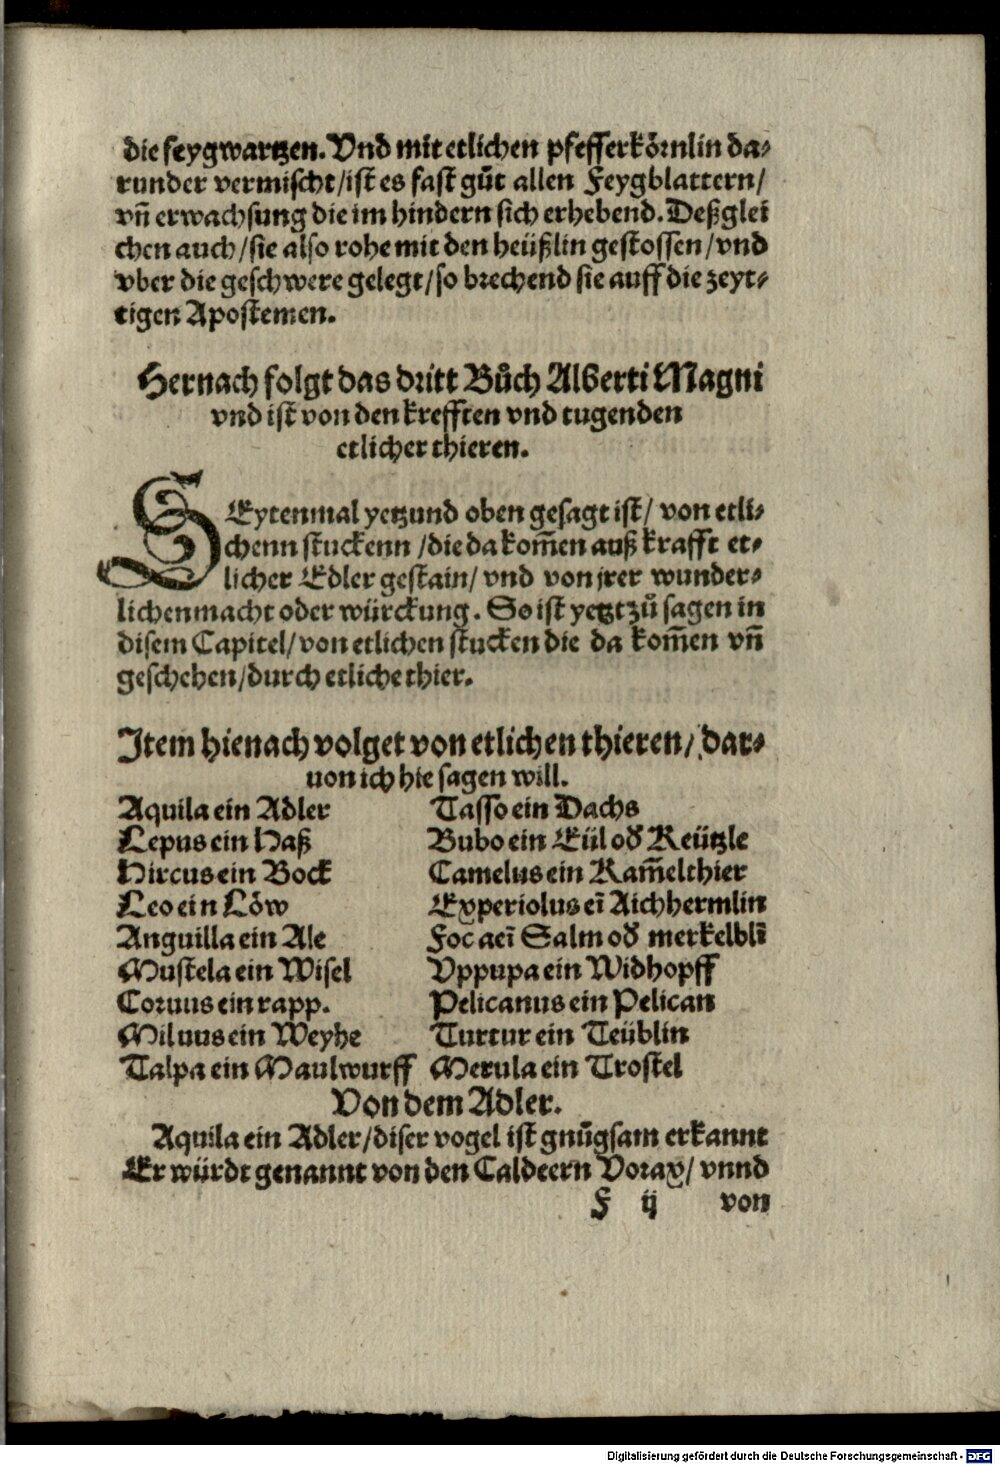 die feygwartzen. Vnd mit etlichen pfefferkoͤrnlin da⸗
runder vermischt/ist es fast guͦt allen Feygblattern/
vnn̄ erwachsung die im hindern sich erhebend. Deßglei
chen auch/sie also rohe mit den heüßlin gestossen/vnd
vber die geschwere gelegt/so brechend sie auff die zeyt⸗
tigen Apostemen.
Hernach folgt das dritt Buͦch Alberti Magni
vnd ist von den krefften vnd tugenden
etlicher thieren.
SEytenmal yetzund oben gesagt ist/ von etli⸗
chenn stuckenn /die da kom̄en auß krafft et⸗
licher Edler gestain/ vnd von jrer wunder⸗
lichen macht oder würckung. So ist yetzt zuͦ sagen in
disem Capitel/von etlichen stucken die da kom̄en vn̄
geschehen/durch etliche thier.
Item hienach volget von etlichen thieren/ dar⸗
uon ich hie sagen will.
Aquila ein Adler
Lepus ein Haß
Hircus ein Bock
Leo ein Loͤw
Anguilla ein Ale
Mustela ein Wisel
Coruus ein rapp.
Miluus ein Weyhe
Talpa ein Maulwurff
Tasso ein Dachs
Bubo ein Eül od̕ Keützle
Camelus ein Kam̄elthier
Experiolus eī Aichhermlin
Foca eī Salm od̕ merkelblī
Vppupa ein Widhopff
Pelicanus ein Pelican
Turtur ein Teüblin
Merula ein Trostel
Von dem Adler.
Aquila ein Adler/diser vogel ist gnuͦgsam erkannt
Er würdt genannt von den Caldeern Vorax/ vnnd
F ij von
Digitalisierung gefördert durch die Deutsche Forschungsgemeinschaft - DFG